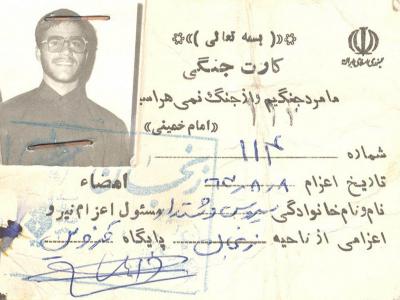 ⟫( بسمه تعالی )⟪
کارت جنگی
جمهوری اسلامی ایران
ما مرد جنگیم و از جنگ نمی هراسیم
«امام خمینی»
شماره ۱۱۴
تاریخ اعزام ۶۳،۸،۹ امضاء
نام و نام خانوادگی سیروس مسئول اعزام نیرو
اعزامی از ناحیه زنجان پایگاه
زنجان